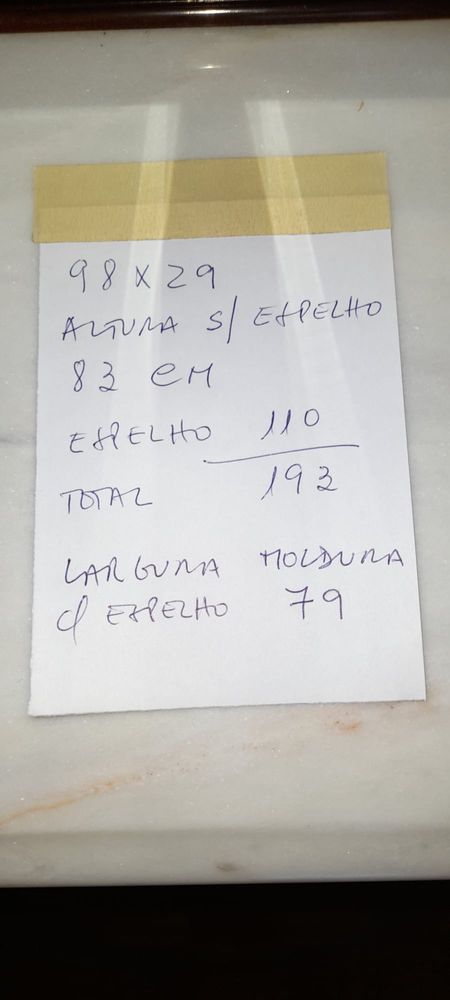 98 X 29
ALTURA S/ ESPELHO
83 CM
ESPELHO 110
TOTAL 193
LARGURA MOLDURA
C/ ESPELHO 79